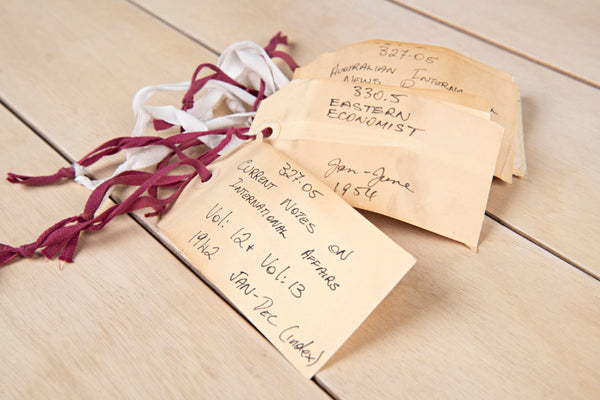 327.05
AUSTRALIAN INTERNA
NEWS
330.5
EASTERN
ECONOMIST
Jan-June
1954
327.05
CURRENT NOTES ON
INTERNATIONAL AFFAIRS
Vol: 12 + Vol: 13
1942
JAN-DEC (index)